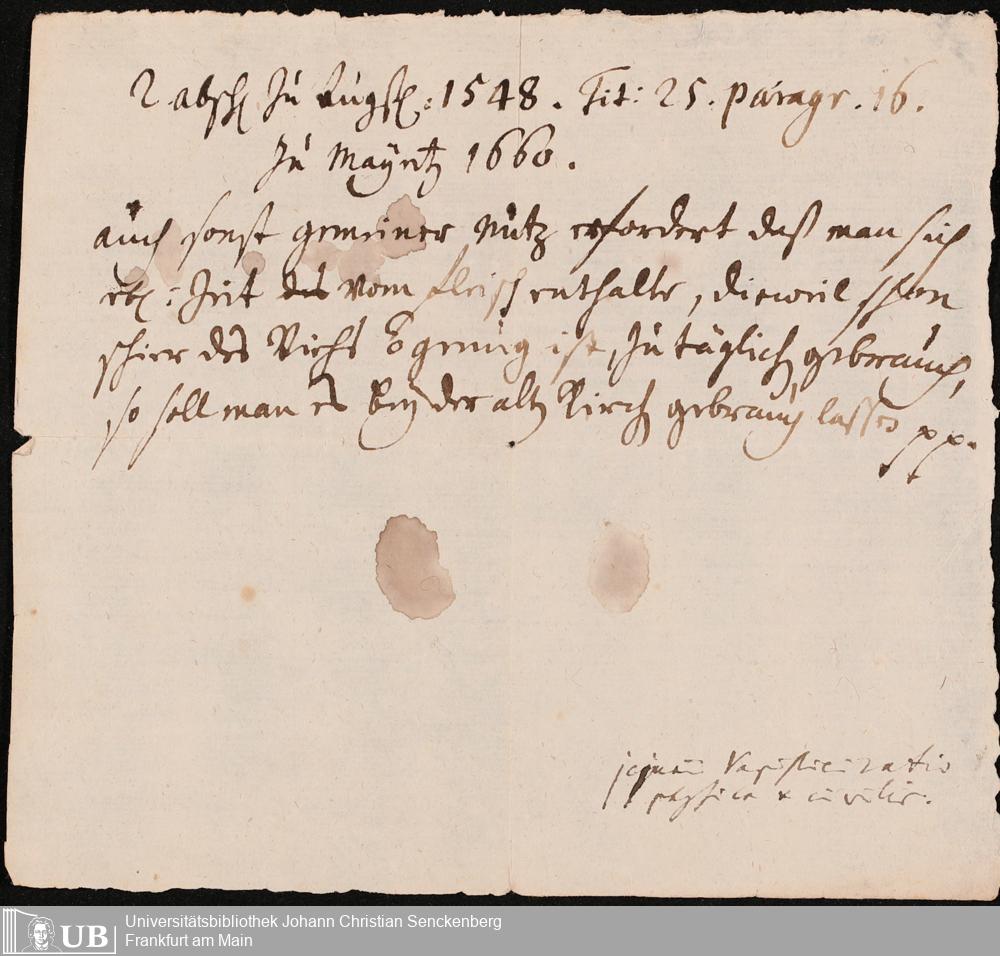 R abschd Zu Augsp: 1548. Tit: 25. paragr. 16.
Zu Mayntz 1660.
auch sonst gemeiner Nutz erfordert daß man sich
etl: Zeit des vom fleisch enthalte, dieweil schon
schier des Viehs Ogenug ist, Zu täglich gebrauch,
so soll man es bey der altn Kirch gebrauch lassen pp.
jejunii Papistici ratio
physica & civilis.
Universitätsbibliothek Johann Christian Senckenberg
Frankfurt am Main
UB